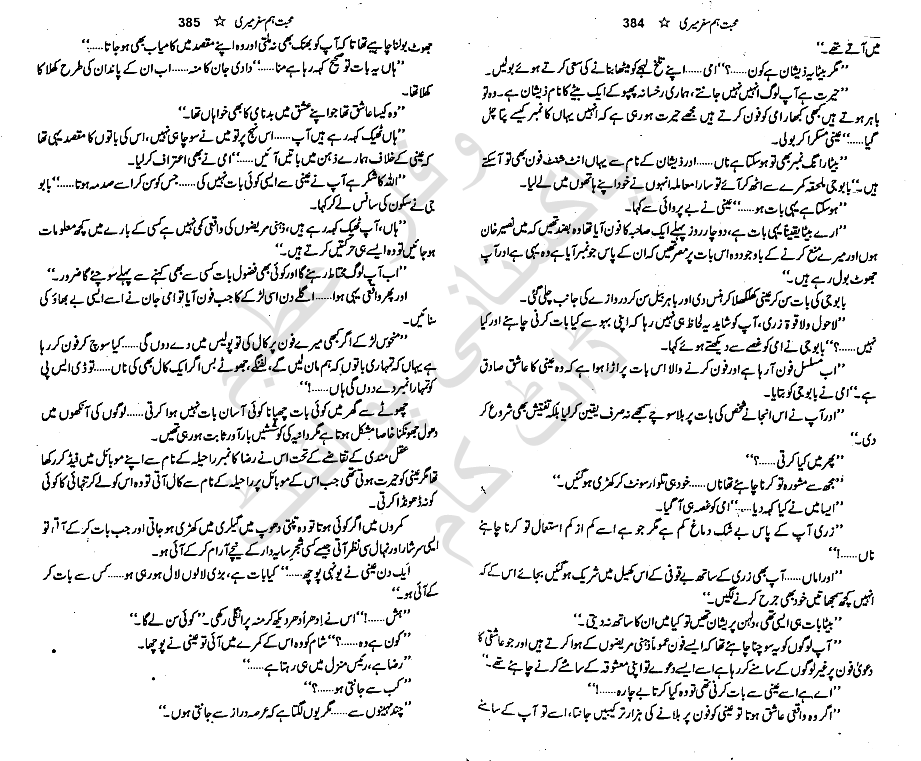 محبت ہم سفر میری ☆ 384
میں آتے تھے۔‘‘
’’مگر بیٹا یہ ذیشان ہے کون......؟‘‘ امی...... اپنے تلخ لہجے کو میٹھا بنانے کی سعی کرتے ہوئے بولیں۔
’’حیرت ہے آپ لوگ انہیں نہیں جانتے، ہماری رخسانہ پھپو کے ایک بیٹے کا نام ذیشان ہے۔ وہ تو
باہر ہوتے ہیں کبھی کبھار امی کو فون کرتے ہیں مجھے حیرت ہو رہی ہے کہ انہیں یہاں کا نمبر کیسے پتا چل
گیا......‘‘ عینی مسکرا کر بولی۔
’’بیٹا رانگ نمبر بھی تو ہو سکتا ہے ناں...... اور ذیشان کے نام سے یہاں انٹ شنٹ فون بھی تو آ سکتے
ہیں۔‘‘ بابو جی ملحقہ کمرے سے اٹھ کر آئے تو سارا معاملہ انہوں نے خود اپنے ہاتھوں میں لے لیا۔
’’ہو سکتا ہے یہی بات ہو......‘‘ عینی نے بے پروائی سے کہا۔
’’ارے بیٹا یقیناً یہی بات ہے، دو چار روز پہلے ایک صاحبہ کا فون آیا تھا وہ بضد تھیں کہ میں نصیر خان
ہوں اور میرے منع کرنے کے باوجود وہ اس بات پر مصر تھیں کہ ان کے پاس جو نمبر آیا ہے وہ یہی ہے اور آپ
جھوٹ بول رہے ہیں۔‘‘
بابو جی کی بات سن کر عینی کھلکھلا کر ہنس دی اور باہر بیل سن کر دروازے کی جانب چلی گئی۔
’’لاحول ولا قوۃ زری، آپ کو شاید یہ لحاظ ہی نہیں رہا کہ اپنی بہو سے کیا بات کرنی چاہئے اور کیا
نہیں......؟‘‘ بابو جی نے امی کو غصے سے دیکھتے ہوئے کہا۔
’’اب مسلسل فون آ رہا ہے اور فون کرنے والا اس بات پر اڑا ہوا ہے کہ وہ عینی کا عاشق صادق
ہے۔‘‘ امی نے بابو جی کو بتایا۔
’’اور آپ نے اس انجانے شخص کی بات پر بلا سوچے سمجھے نہ صرف یقین کر لیا بلکہ تفتیش بھی شروع کر
دی۔‘‘
’’پھر میں کیا کرتی......؟‘‘
’’مجھ سے مشورہ تو کرنا چاہئے تھا ناں...... خود ہی تلوار سونت کر کھڑی ہو گئیں۔‘‘
’’ایسا میں نے کیا کہہ دیا......‘‘ امی کو غصہ ہی آ گیا۔
’’زری آپ کے پاس بے شک دماغ کم ہے مگر جو ہے اسے کم از کم استعمال تو کرنا چاہئے
ناں......!‘‘
’’اور اماں...... آپ بھی زری کے ساتھ بے وقوفی کے اس کھیل میں شریک ہو گئیں بجائے اس کے کہ
انہیں کچھ سمجھاتیں خود بھی جرح کرنے لگیں۔‘‘
’’بیٹا بات ہی ایسی تھی، دلہن پریشان تھیں تو کیا میں ان کا ساتھ نہ دیتی۔‘‘
’’آپ لوگوں کو یہ سوچنا چاہئے تھا کہ ایسے فون عموماً ذہنی مریضوں کے ہوا کرتے ہیں اور جو عاشقی کا
دعویٰ فون پر غیر لوگوں کے سامنے کر رہا ہے اسے ایسے دعوے تو اپنی معشوقہ کے سامنے کرنے چاہئے تھے۔‘‘
’’اے ہے اسے عینی سے بات کرنی تھی تو وہ کیا کرتا بے چارہ......!‘‘
’’اگر وہ واقعی عاشق ہوتا تو عینی کو فون پر بلانے کی ہزار ترکیبیں جانتا، اسے تو آپ کے سامنے
محبت ہم سفر میری ☆ 385
جھوٹ بولنا چاہیے تھا تا کہ آپ کو بھنک بھی نہ ملتی اور وہ اپنے مقصد میں کامیاب بھی ہو جاتا......‘‘
’’ہاں یہ بات تو صحیح کہہ رہا ہے منا......‘‘ دادی جان کا منہ...... اب ان کے پاندان کی طرح کھلا کا
کھلا تھا۔
’’وہ کیسا عاشق تھا جو اپنے عشق میں بدنامی کا بھی خواہاں تھا۔‘‘
’’ہاں ٹھیک کہہ رہے ہیں آپ...... اس نہج پر تو میں نے سوچا ہی نہیں، اس کی باتوں کا مقصد یہی تھا
کہ عینی کے خلاف ہمارے ذہن میں باتیں آئیں......‘‘ امی نے بھی اعتراف کر لیا۔
’’اللہ کا شکر ہے آپ نے عینی سے ایسی کوئی بات نہیں کی...... جس کو سن کر اسے صدمہ ہوتا......‘‘ بابو
جی نے سکون کی سانس لے کر کہا۔
’’ہاں، آپ ٹھیک کہہ رہے ہیں، ذہنی مریضوں کی واقعی کمی نہیں ہے کسی کے بارے میں کچھ معلومات
ہو جائیں تو وہ ایسے ہی حرکتیں کرتے ہیں۔‘‘
’’اب آپ لوگ محتاط رہئے گا اور کوئی بھی فضول بات کسی سے بھی کہنے سے پہلے سوچئے گا ضرور۔‘‘
اور پھر واقعی یہی ہوا...... اگلے دن اسی لڑکے کا جب فون آیا تو امی جان نے اسے ایسی بے بھاؤ کی
سنائیں۔
’’منحوس لڑکے اگر کبھی میرے فون پر کال کی تو پولیس میں دے دوں گی...... کیا سوچ کر فون کر رہا
ہے یہاں کہ تمہاری باتوں کو ہم مان لیں گے، لفنگے، جھوٹے بس اگر ایک کال بھی کی ناں...... تو ڈی ایس پی
کو تمہارا نمبر دے دوں گی ہاں......!‘‘
چھوٹے سے گھر میں کوئی بات چھپانا کوئی آسان بات نہیں ہوا کرتی...... لوگوں کی آنکھوں میں
دھول جھونکنا خاصا مشکل ہوتا ہے مگر دانیہ کی کوششیں بار آور ثابت ہو رہی تھیں۔
عقل مندی کے تقاضے کے تحت اس نے رضا کا نمبر راحیلہ کے نام سے اپنے موبائل میں فیڈ کر رکھا
تھا مگر عینی کو حیرت ہوتی تھی جب اس کے موبائل پر راحیلہ کے نام سے کال آتی تو وہ اس کو لے کر تنہائی کا کوئی
کونہ ڈھونڈا کرتی۔
کمروں میں اگر کوئی ہوتا تو وہ تپتی دھوپ میں گیلری میں کھڑی ہو جاتی اور جب بات کر کے آتی تو
ایسی سرشار اور نہال سی نظر آتی جیسے کسی شجر سایہ دار کے نیچے آرام کر کے آئی ہو۔
ایک دن عینی نے یونہی پوچھا......’’ کیا بات ہے، بڑی لالوں لال ہو رہی ہو...... کس سے بات کر
کے آئی ہو۔‘‘
’’ہش......!‘‘ اس نے ادھر اُدھر دیکھ کر منہ پر انگلی رکھی۔ ’’کوئی سن لے گا۔‘‘
’’کون ہے وہ......؟‘‘ شام کو وہ اس کے کمرے میں آئی تو عینی نے پوچھا۔
’’رضا ہے، رئیس منزل میں ہی رہتا ہے......‘‘
’’کب سے جانتی ہو......؟‘‘
’’چند مہینوں سے...... مگر یوں لگتا ہے کہ عرصہ دراز سے جانتی ہوں۔‘‘